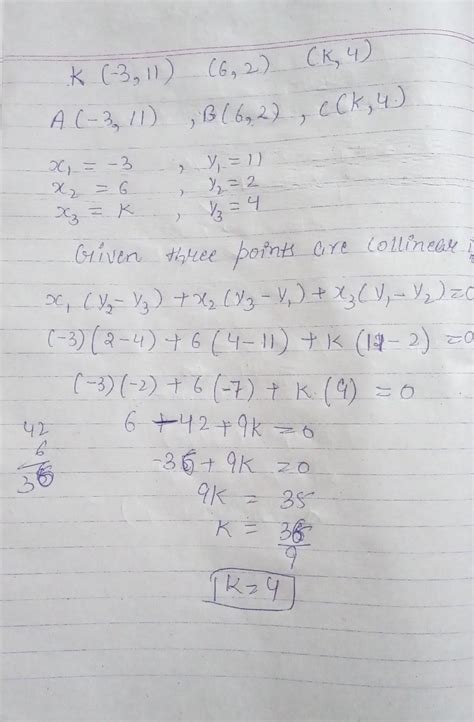 K (-3, 11) (6, 2) (K, 4)
A (-3, 11) , B(6, 2) , C(K, 4)
x₁ = -3 , y₁ = 11
x₂ = 6 , y₂ = 2
x₃ = K , y₃ = 4
Given three points are collinear
x₁ (y₂ - y₃) + x₂ (y₃ - y₁) + x₃ (y₁ - y₂) = 0
(-3) (2 - 4) + 6 (4 - 11) + K (11 - 2) = 0
(-3) (-2) + 6 (-7) + K (9) = 0
6 - 42 + 9K = 0
42
6
36
-36 + 9K = 0
9K = 35
K = 36
9
K = 4